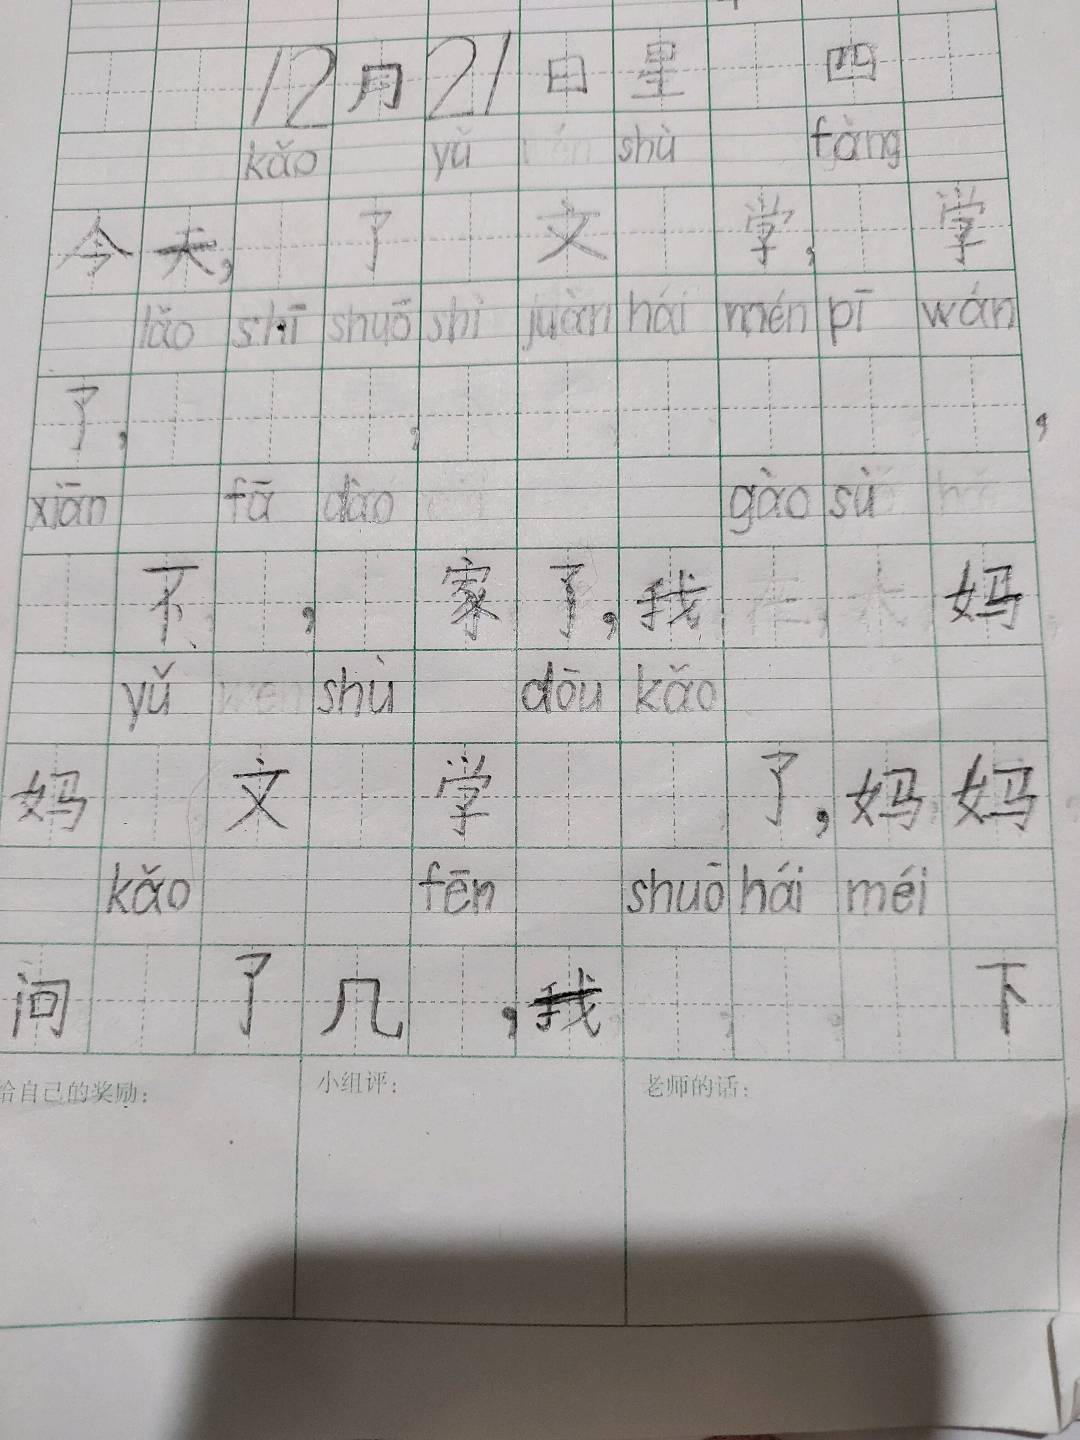 12月21日星 四
kǎo yǔ shù fàng
今天, 了 文 学, 学
lǎo shī shuō shì juàn hái mén pī wán
了, , ,
xiān fā dào gào sù
不 , 家了,我 妈
yǔ wen shù dōu kǎo
妈 文 学 了,妈妈
kǎo fēn shuō hái méi
问 了几 ,我 下
给自己的奖励: 小组评: 老师的话: